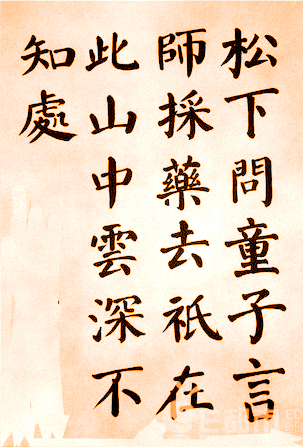 松下問童子言
師採藥去祇在
此山中雲深不
知處